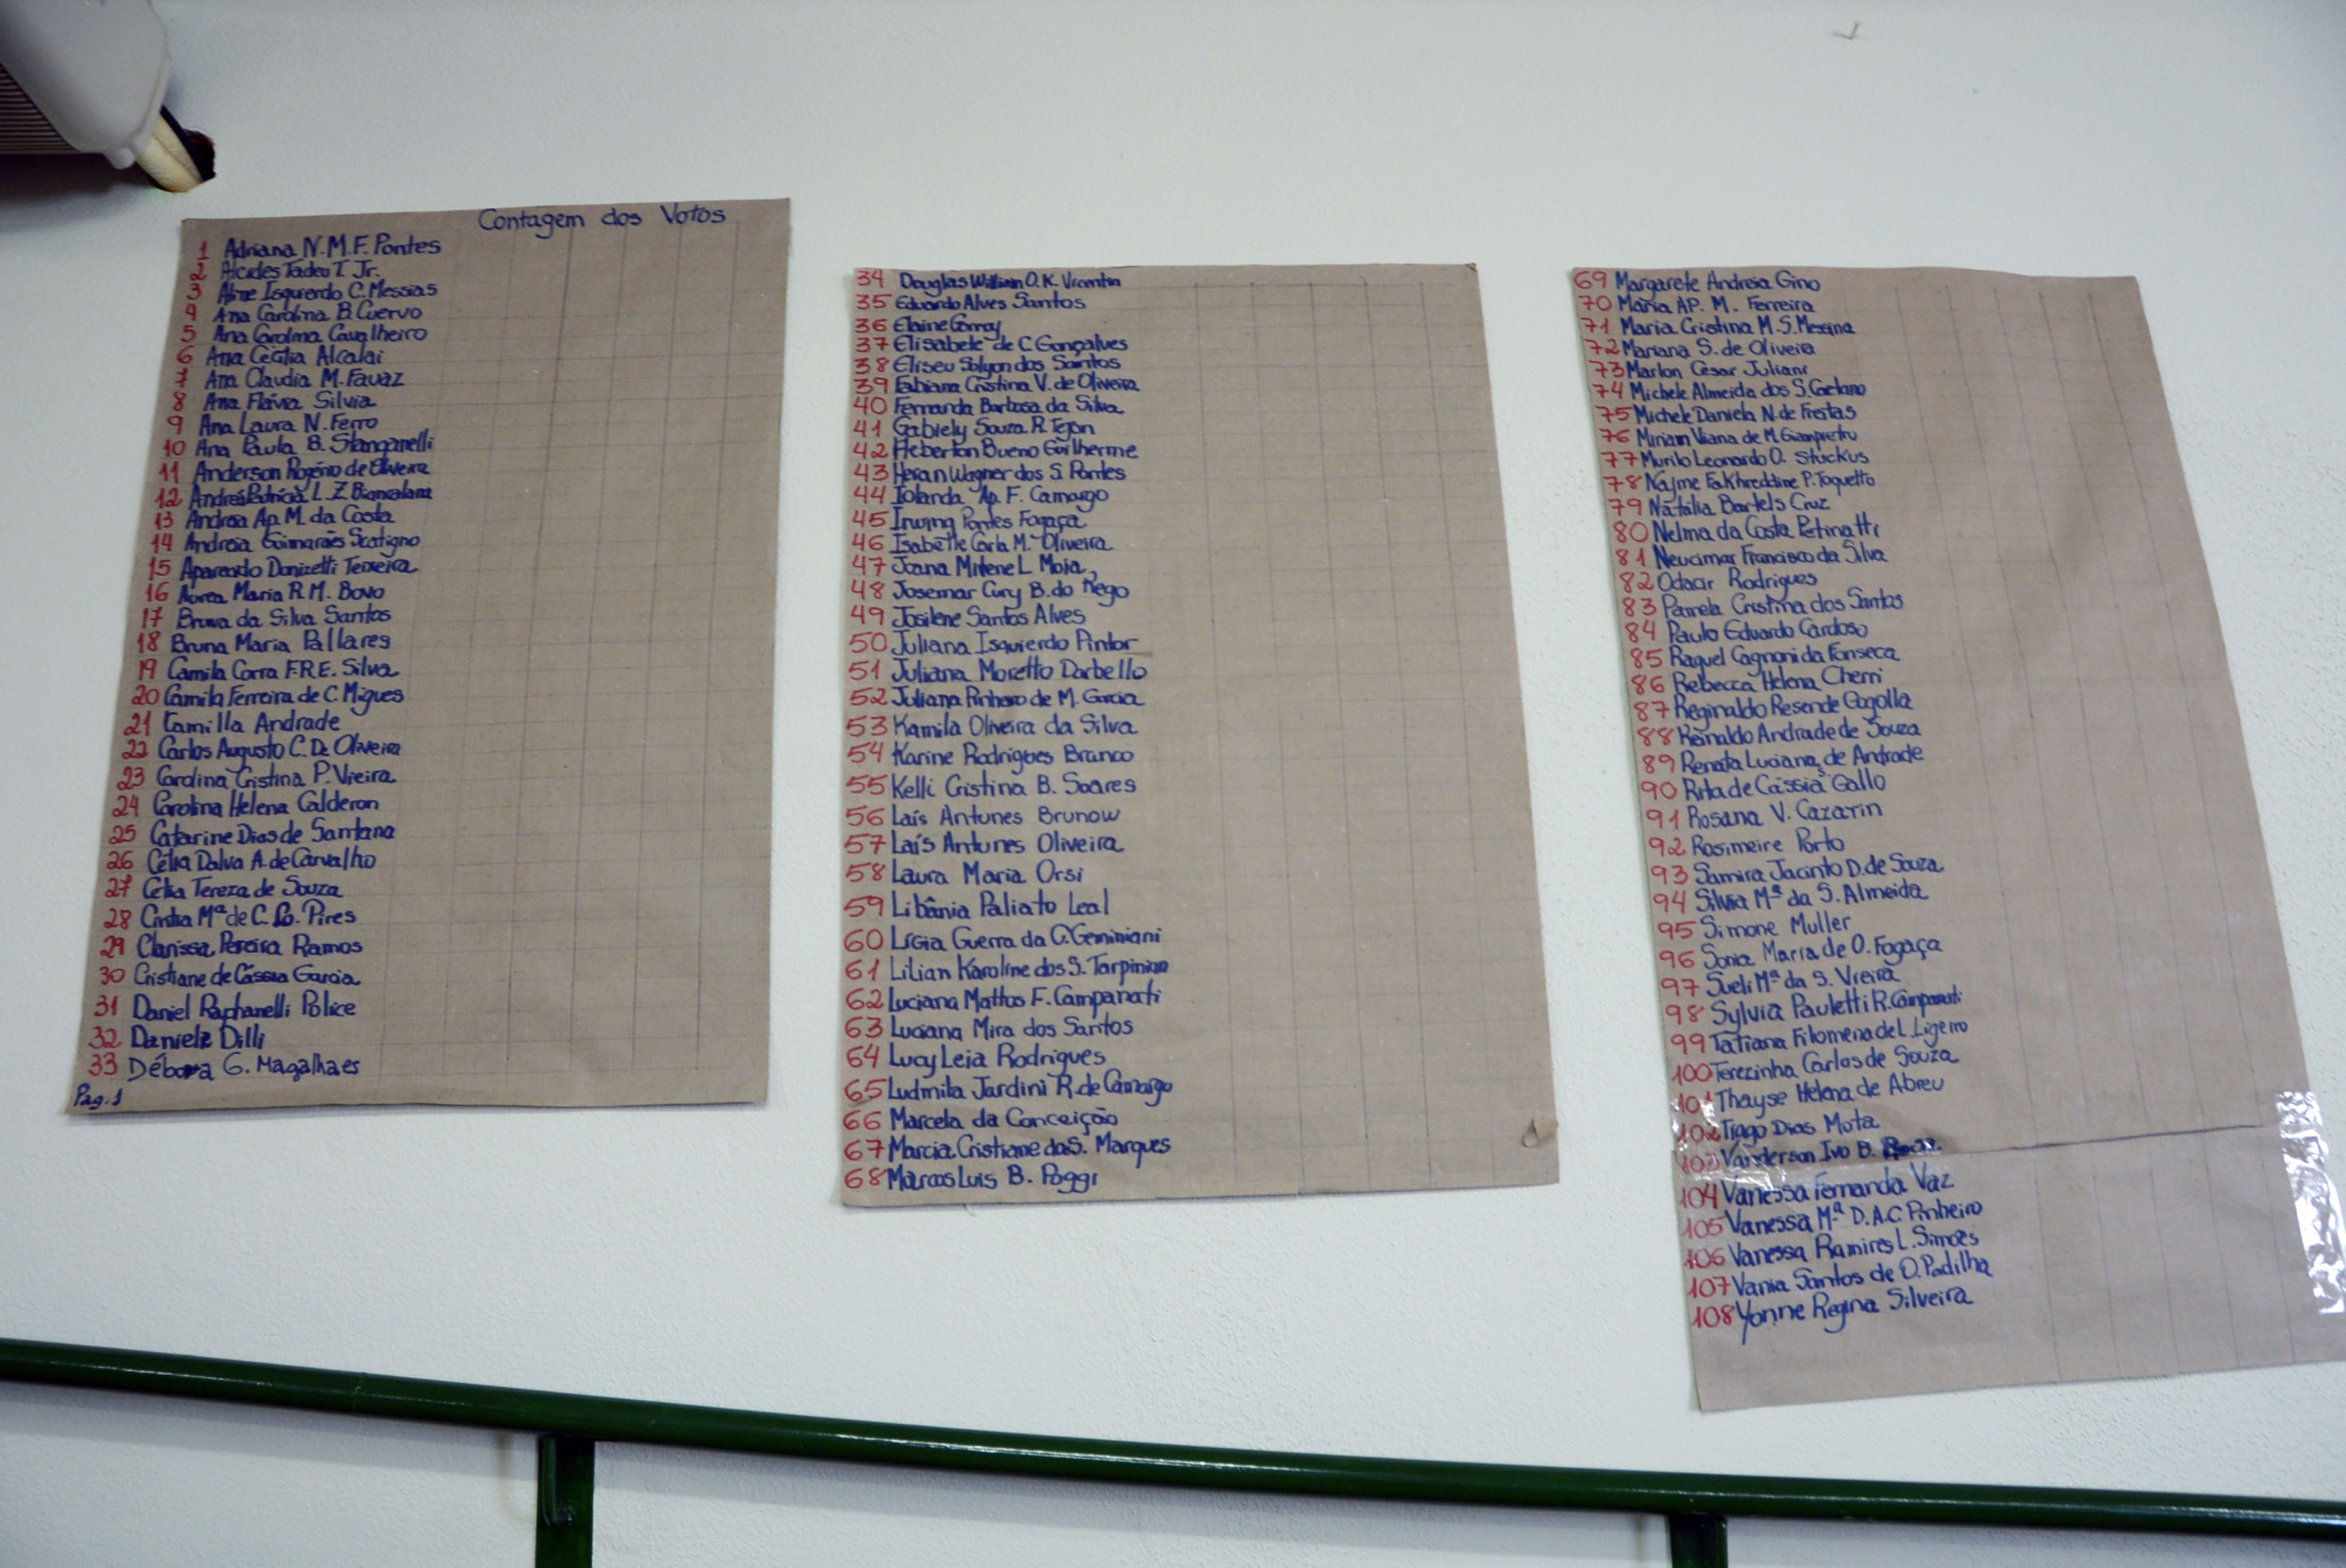 Contagem dos Votos
1 Adriana N.M.F. Pontes
2 Alcides Tadeu T. Jr.
3 Aline Isquierdo C. Messias
4 Ana Carolina B. Cuervo
5 Ana Carolina Cavalheiro
6 Ana Cecília Alcalai
7 Ana Claudia M. Favaz
8 Ana Flávia Silvia
9 Ana Laura N. Ferro
10 Ana Paula B. Stanganelli
11 Anderson Rogério de Oliveira
12 Andréa Patrícia L. Z. Biancalana
13 Andrea Ap. M. da Costa
14 Andreia Guimarães Scatigno
15 Aparecido Donizetti Teixeira
16 Aurea Maria R.M. Bovo
17 Bruna da Silva Santos
18 Bruna Maria Pallares
19 Camila Corra F.R.E. Silva
20 Camila Ferreira de C. Migues
21 Camilla Andrade
22 Carlos Augusto C. De Oliveira
23 Carolina Cristina P. Vieira
24 Carolina Helena Calderon
25 Catarine Dias de Santana
26 Célia Dalva A. de Carvalho
27 Célia Tereza de Souza
28 Cintia Mª de C. Lo. Pires
29 Clarissa Pereira Ramos
30 Cristiane de Cássia Garcia
31 Daniel Raphanelli Police
32 Daniele Dilli
33 Débora G. Magalhaes
Pag. 1
34 Douglas William O.K. Vicentin
35 Eduardo Alves Santos
36 Elaine
37 Elisabete de C. Gonçalves
38 Eliseu Solyon dos Santos
39 Fabiana Cristina V. de Oliveira
40 Fernanda Barbosa da Silva
41 Gabiely Souza R. Tejon
42 Heberton Bueno Guilherme
43 Heran Wagner dos S. Pontes
44 Iolanda Ap. F. Camargo
45 Irwing Pontes Fogaça
46 Isabelle Carla M. Oliveira
47 Joana Milene L. Moia
48 Josemar Cury B. do Rego
49 Josilene Santos Alves
50 Juliana Isquierdo Pintor
51 Juliana Moretto Darbello
52 Juliana Pinheiro de M. Garcia
53 Kamila Oliveira da Silva
54 Karine Rodrigues Branco
55 Kelli Cristina B. Soares
56 Laís Antunes Brunow
57 Laís Antunes Oliveira
58 Laura Maria Orsi
59 Libânia Paliato Leal
60 Lígia Guerra da C. Geminiani
61 Lilian Karoline dos S. Tarpinian
62 Luciana Mattos F. Campanati
63 Luciana Mira dos Santos
64 Lucy Leia Rodrigues
65 Ludmila Jardini R. de Camargo
66 Marcela da Conceição
67 Marcia Cristiane do S. Marques
68 Marcos Luis B. Poggi
69 Margarete Andreia Gino
70 Maria AP. M. Ferreira
71 Maria Cristina M.S. Messina
72 Mariana S. de Oliveira
73 Marlon César Juliani
74 Michele Almeida dos S. Caetano
75 Michele Daniela N. de Freitas
76 Miriam Viana de M. Giampietro
77 Murilo Leonardo O. Stuckus
78 Najme Fakhreddine P. Toquetto
79 Natália Bartels Cruz
80 Nelma da Costa Petinatti
81 Neucimar Francisco da Silva
82 Odacir Rodrigues
83 Pamela Cristina dos Santos
84 Paulo Eduardo Cardoso
85 Raquel Cagnoni da Fonseca
86 Rebecca Helena Cherri
87 Reginaldo Resende Gogolla
88 Reinaldo Andrade de Souza
89 Renata Luciana de Andrade
90 Rita de Cássia Gallo
91 Rosana V. Cazarin
92 Rosimeire Porto
93 Samira Jacinto D. de Souza
94 Silvia Mª da S. Almeida
95 Simone Muller
96 Sonia Maria de O. Fogaça
97 Sueli Mª da S. Vieira
98 Sylvia Pauletti R. Campanati
99 Tatiana Filomena de L. Ligeiro
100 Terezinha Carlos de Souza
101 Thayse Helena de Abreu
102 Tiago Dias Mota
103 Vanderson Ivo B.
104 Vanessa Fernanda Vaz
105 Vanessa Mª D.A.C. Pinheiro
106 Vanessa Ramires L. Simões
107 Vania Santos de O. Padilha
108 Yonne Regina Silveira